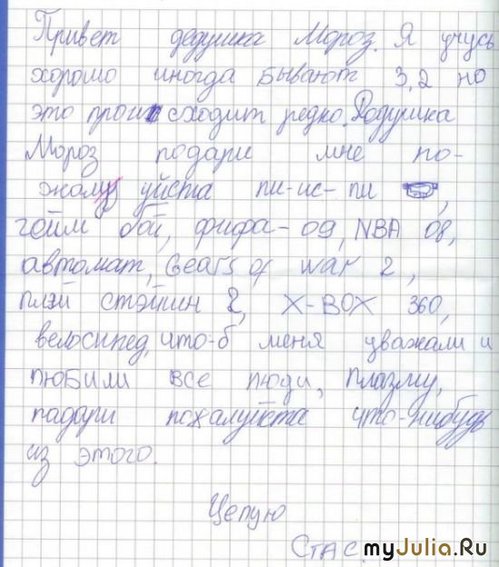 Привет дедушка Мороз. Я учусь
хорошо иногда бывают 3,2 но
это происходит редко. Дедушка
Мороз подари мне по-
жалуйста пи-ис-пи,
гейм бой, фифа-09, NBA 08,
автомат, Gears of war 2,
плэй стэйшин 2, X-BOX 360,
велосипед, что-б меня уважали и
любили все люди, плазму,
падари пожалуйкта что-нибудь
из этого.
Целую
Стас.
myJulia.Ru